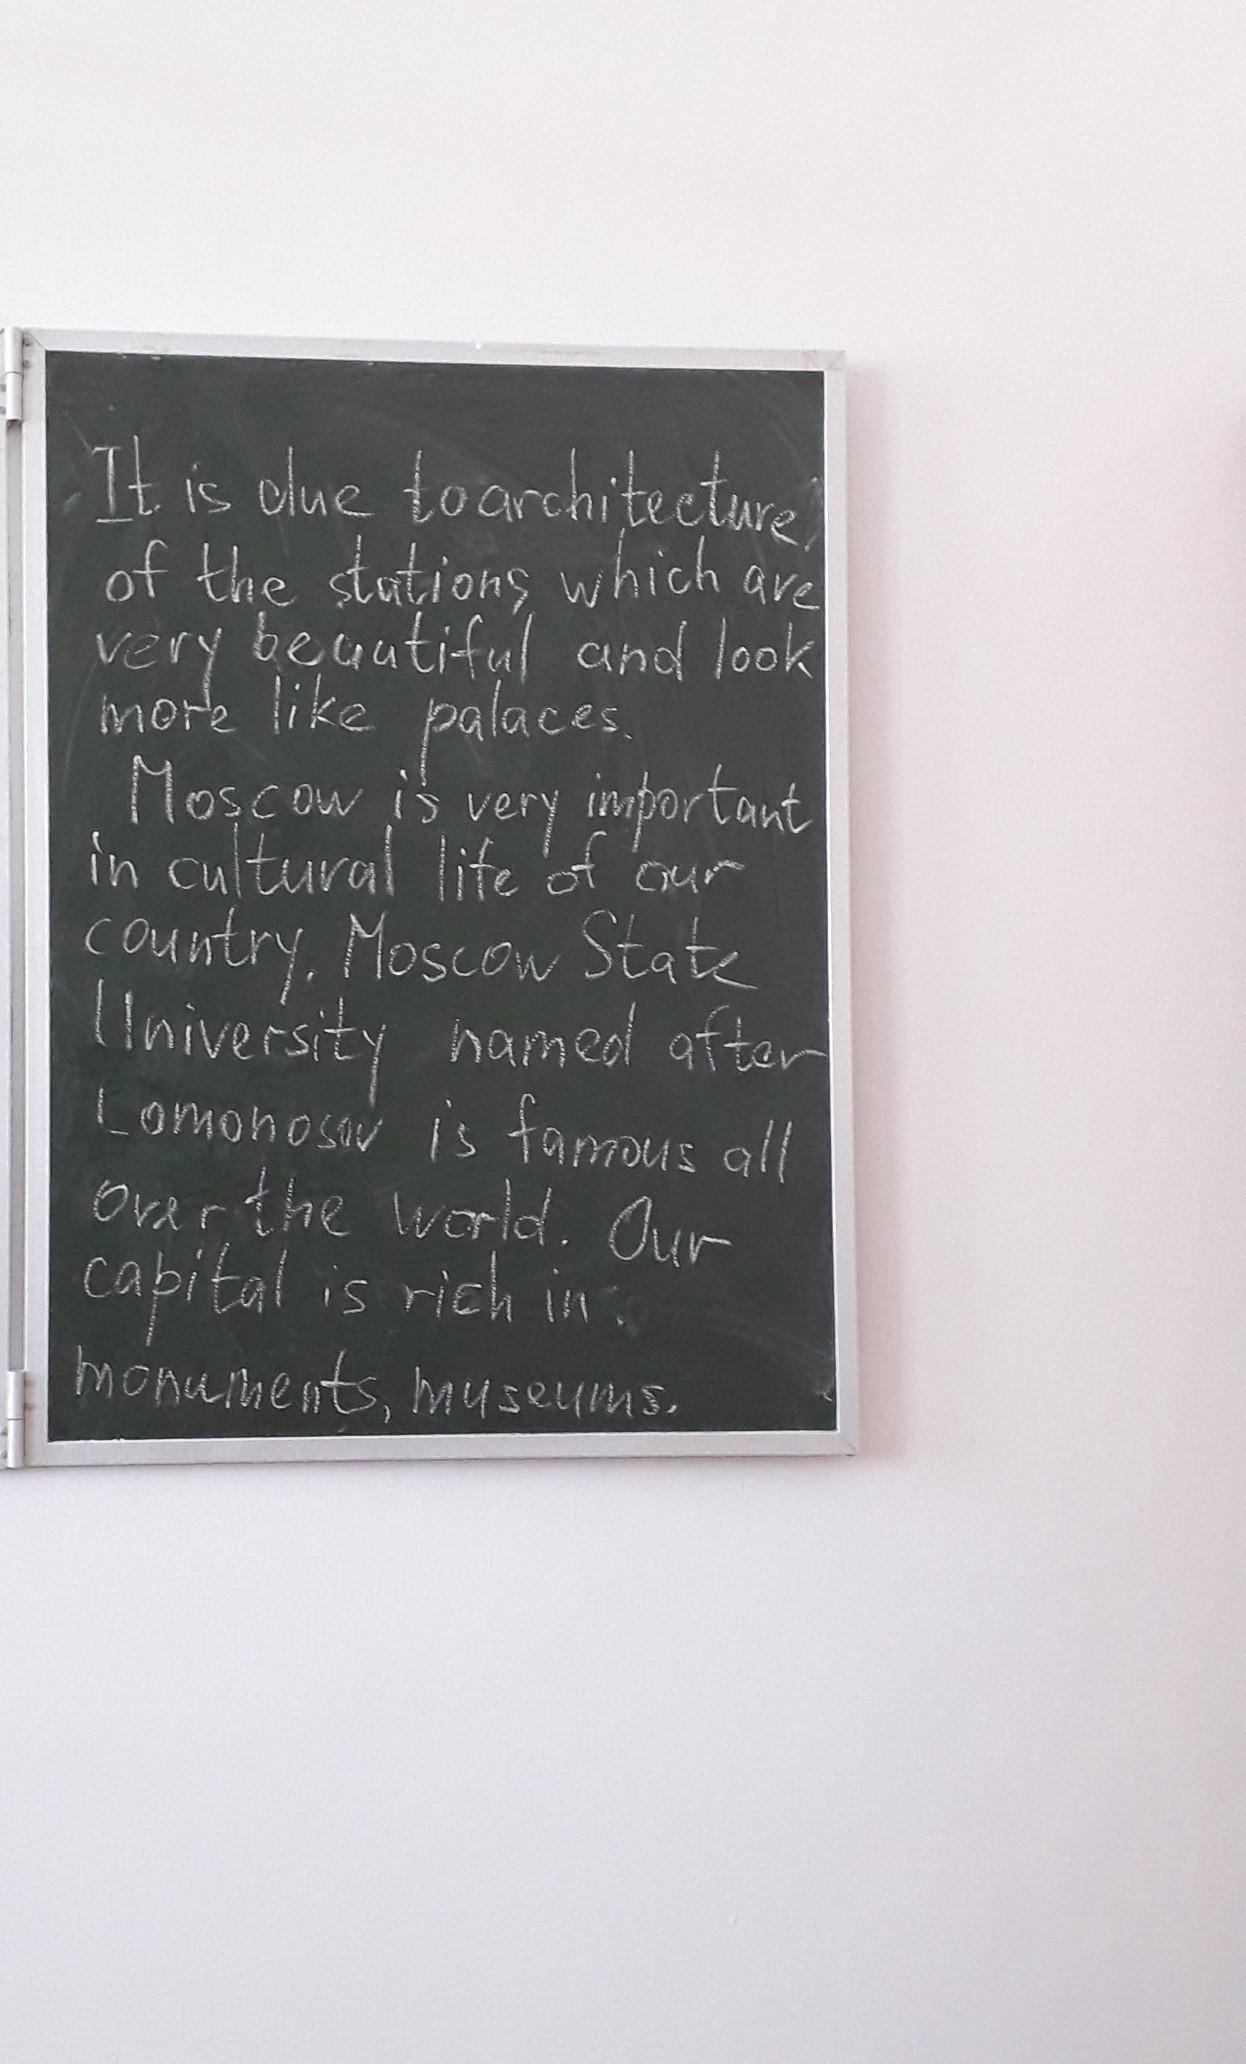 It is due to architecture
of the stations which are
very beautiful and look
more like palaces.
Moscow is very important
in cultural life of our
country. Moscow State
University named after
Lomonosov is famous all
over the world. Our
capital is rich in
monuments, museums.